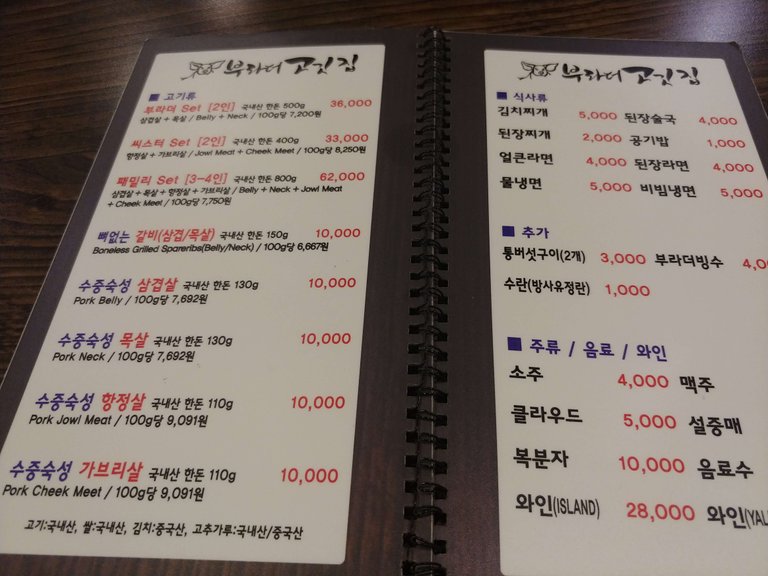 부라더 고깃집
■ 고기류
부라더 Set [2인] 국내산 한돈 500g 36,000
삼겹살 + 목살 / Belly + Neck / 100g당 7,200원
씨스터 Set [2인] 국내산 한돈 400g 33,000
항정살 + 가브리살 / Jowl Meat + Cheek Meet / 100g당 8,250원
패밀리 Set [3-4인] 국내산 한돈 800g 62,000
삼겹살 + 목살 + 항정살 + 가브리살 / Belly + Neck + Jowl Meat
+ Cheek Meet / 100g당 7,750원
뼈없는 갈비(삼겹/목살) 국내산 한돈 150g 10,000
Boneless Grilled Spareribs(Belly/Neck) / 100g당 6,667원
수중숙성 삼겹살 국내산 한돈 130g 10,000
Pork Belly / 100g당 7,692원
수중숙성 목살 국내산 한돈 130g 10,000
Pork Neck / 100g당 7,692원
수중숙성 항정살 국내산 한돈 110g 10,000
Pork Jowl Meat / 100g당 9,091원
수중숙성 가브리살 국내산 한돈 110g 10,000
Pork Cheek Meet / 100g당 9,091원
고기:국내산, 쌀:국내산, 김치:중국산, 고추가루:국내산/중국산
부라더 고깃집
■ 식사류
김치찌개 5,000 된장술국 4,000
된장찌개 2,000 공기밥 1,000
얼큰라면 4,000 된장라면 4,000
물냉면 5,000 비빔냉면 5,000
■ 추가
통버섯구이(2개) 3,000 부라더빙수 4,0
수란(방사유정란) 1,000
■ 주류 / 음료 / 와인
소주 4,000 맥주
클라우드 5,000 설중매
복분자 10,000 음료수
와인(ISLAND) 28,000 와인(YAL